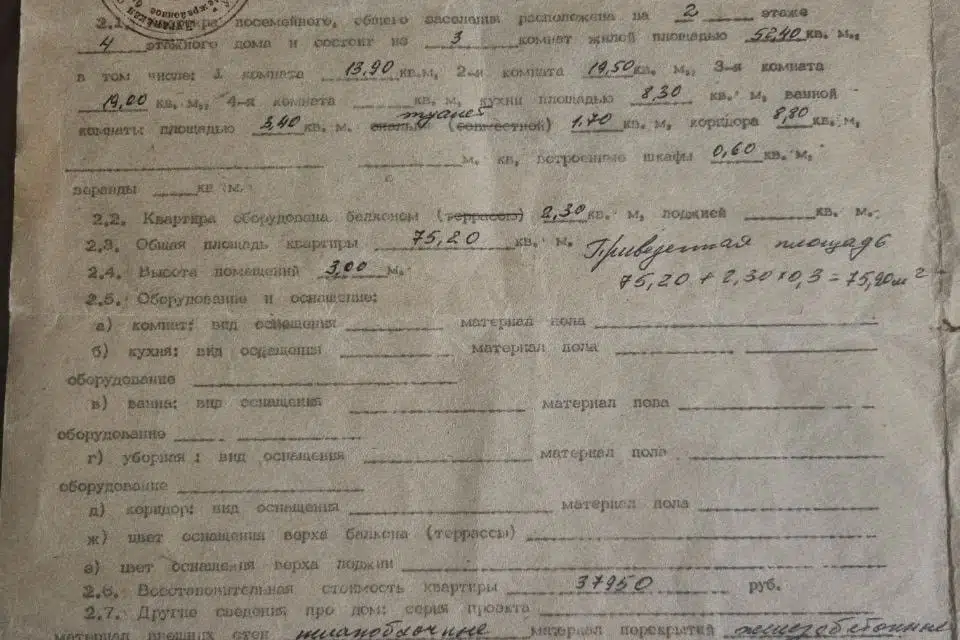 2.1. посемейного, общего заселения расположена на 2 этаже
4 этажного дома и состоит из 3 комнат жилой площадью 52,40 кв. м.,
в том числе: 1 комната 13,90 кв.м, 2-я комната 19,50 кв. м., 3-я комната
19,00 кв. м., 4-я комната кв. м, кухни площадью 8,30 кв. м, ванной
комнаты площадью 3,40 кв. м. туалет (совместной) 1.70 кв. м, коридора 8,80 кв. м,
м. кв, встроенные шкафы 0,60 кв. м,
веранды кв м.
2.2. Квартира оборудована балконом (террасой) 2,30 кв. м, лоджией кв. м.
2.3. Общая площадь квартиры 75,20 кв. м. Приведенная площадь
2.4. Высота помещений 3,00 м. 75,20 + 2,30 x 0,3 = 75,90 м2
2.5. Оборудование и оснащение:
а) комнат: вид оснащения материал пола
б) кухня: вид оснащения материал пола
оборудование
в) ванна: вид оснащения материал пола
оборудование
г) уборная : вид оснащения материал пола
оборудование
д) коридор: вид оснащения материал пола
ж) цвет оснащения верха балкона (террассы)
з) цвет оснащения верха лоджии
2.6. Восстановительная стоимость квартиры 37950 руб.
2.7. Другие сведения про дом: серия проекта
материал внешних стен шлакоблочные материал перекрытий железобетонные